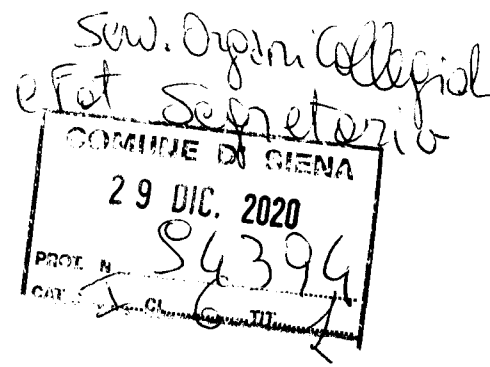 Serv. Organi Collegiali
e Fot Segretario
COMUNE DI SIENA
29 DIC. 2020
PROT. N. 94394
CAT. I CL. 6 TIT. 1